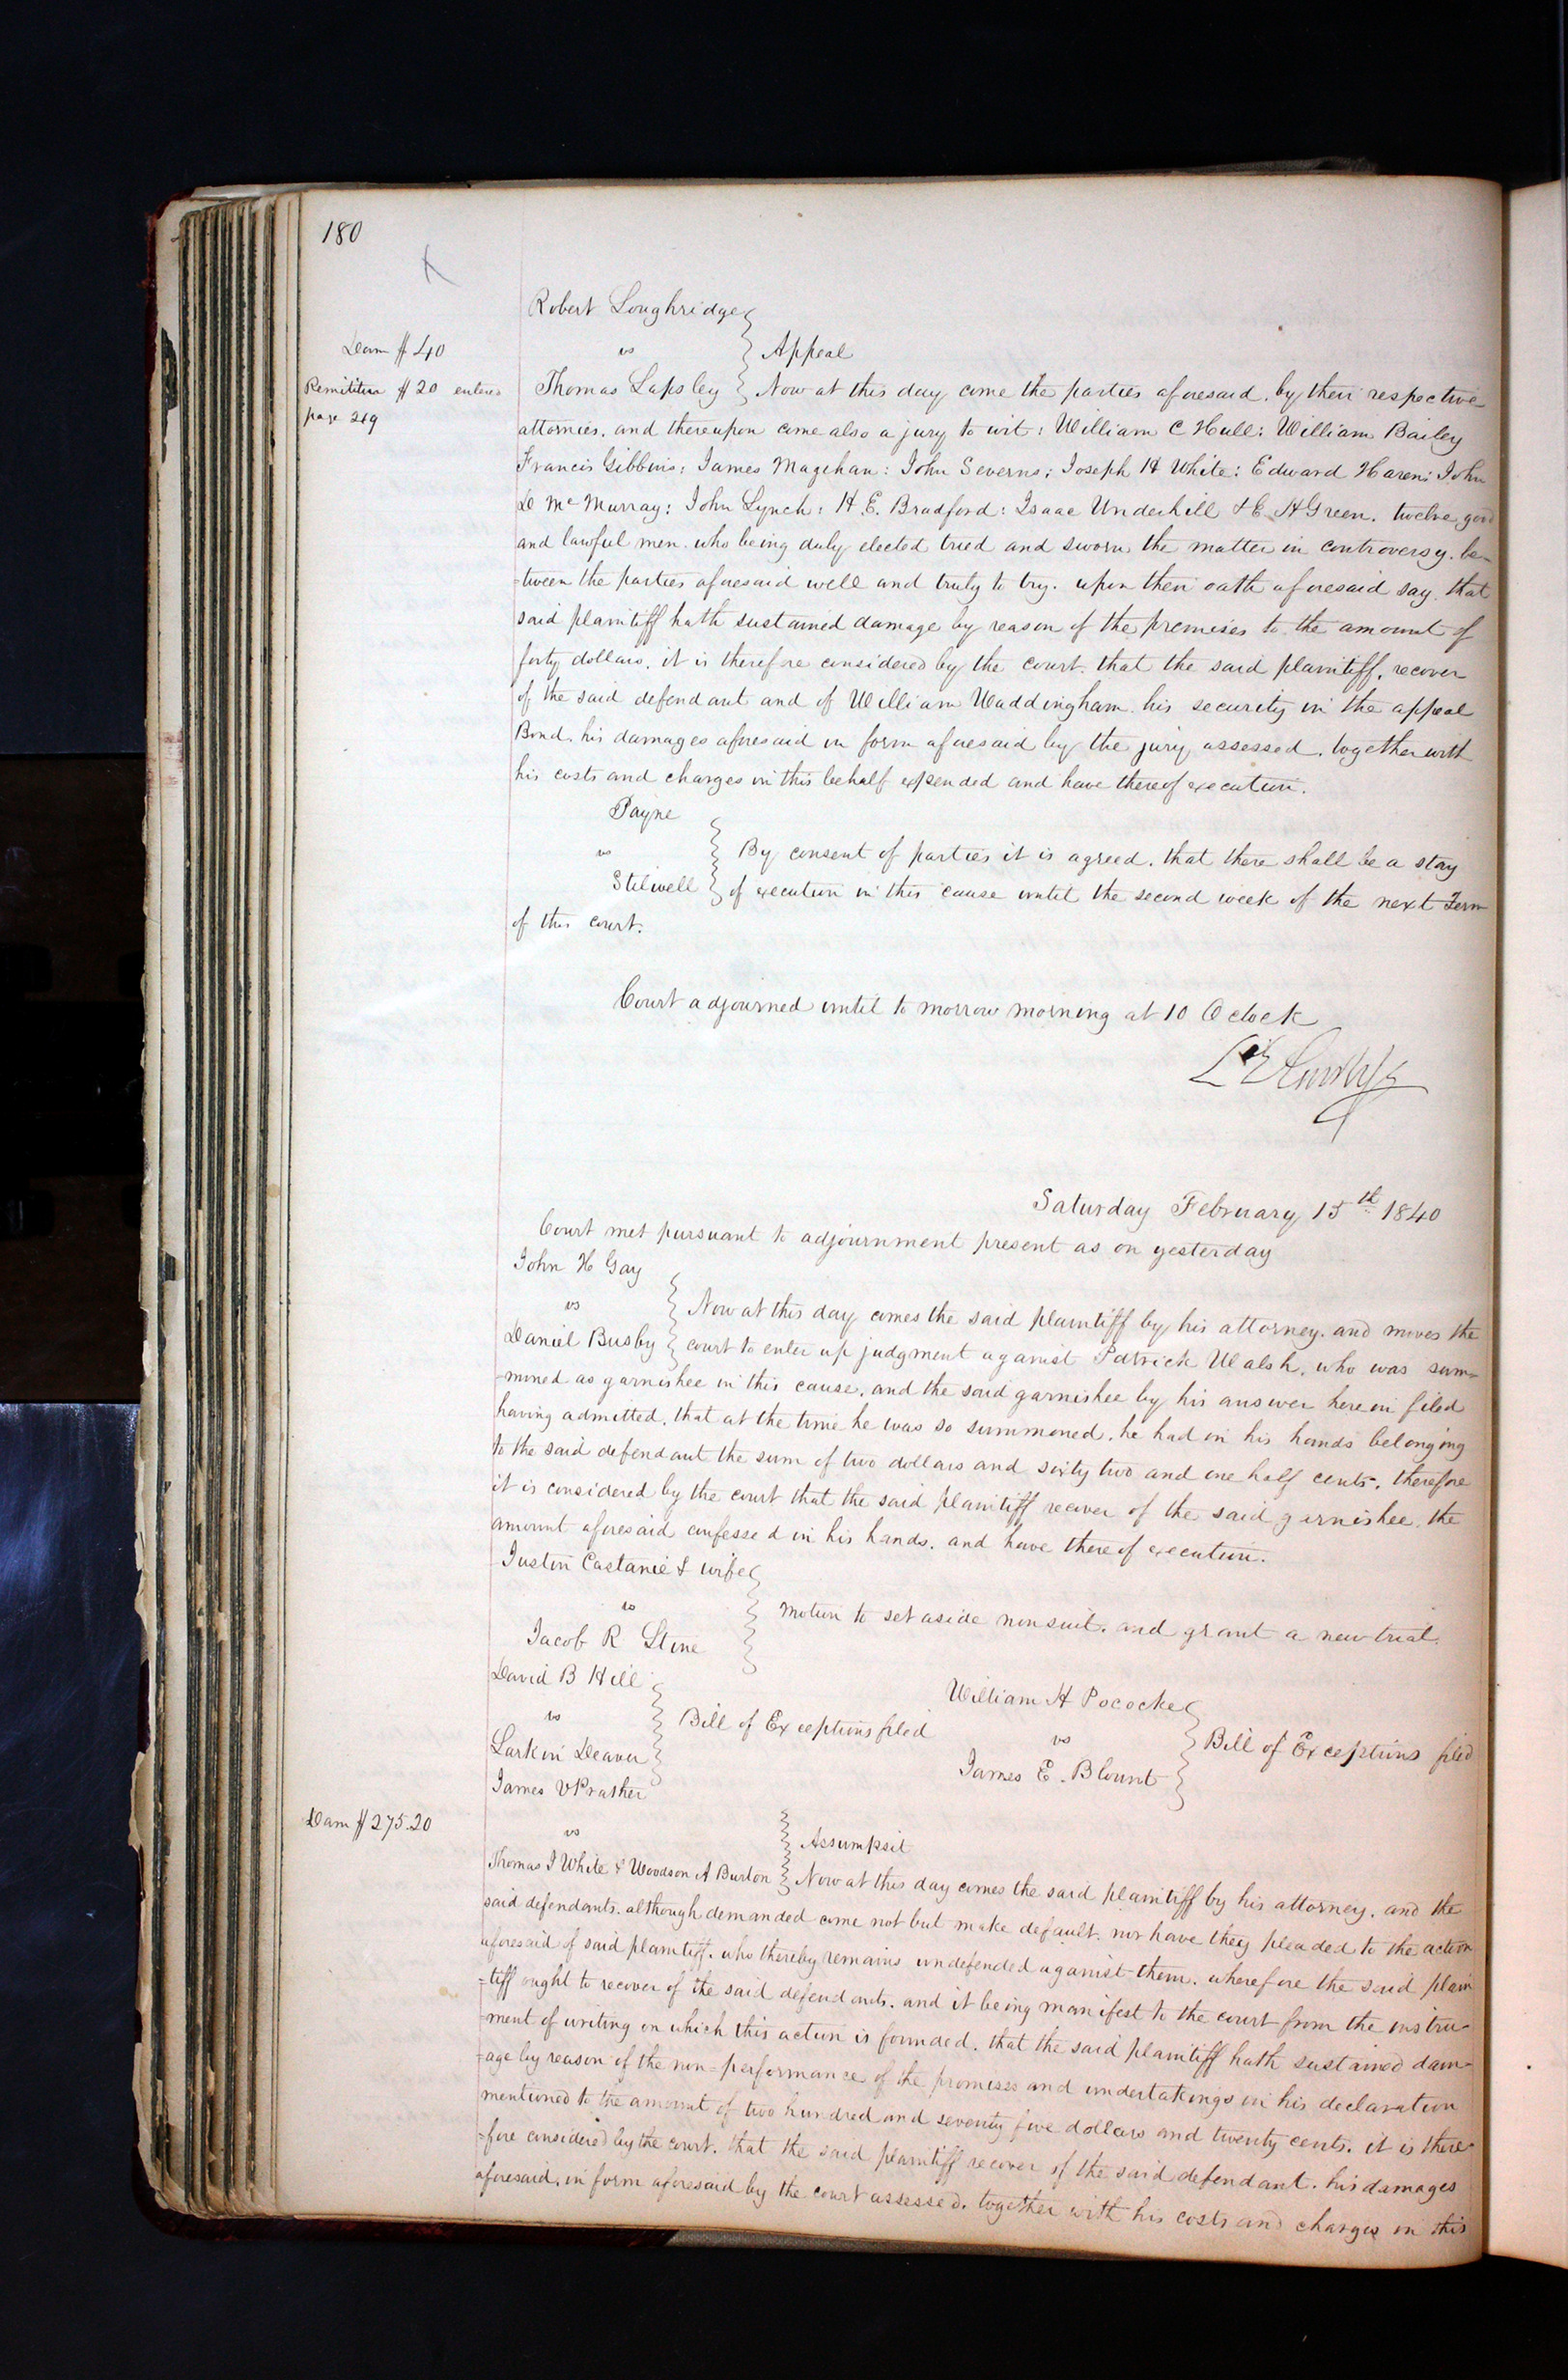 180
Robert Loughridge
vs
Appeal
Dam $ 40
Remititur $ 20 entered
page 219
Thomas Lapsley Now at this day come the parties aforesaid. by their respective
attornies. and thereupon come also a jury to wit: William C Hull: William Bailey
Francis Gibbins: James Magehan: John Severns: Joseph H White: Edward Haren: John
D Mc Murray: John Lynch: H. E. Bradford: Isaac Underhill & E H Green. twelve good
and lawful men. who being duly elected tried and sworn the matter in controversy. be-
-tween the parties aforesaid well and truly to try. upon their oath aforesaid say. that
said plaintiff hath sustained damage by reason of the premises to the amount of
forty dollars. it is therefore considered by the court. that the said plaintiff. recover
of the said defendant and of William Waddingham. his security in the appeal
Bond. his damages aforesaid in form aforesaid by the jury assessed. together with
his costs and charges in this behalf expended and have thereof execution.
Payne
vs
By consent of parties it is agreed. that there shall be a stay
Stilwell of execution in this cause until the second week of the next Term
of this court.
Court adjourned until to morrow morning at 10 O clock
Saturday February 15th 1840
Court met pursuant to adjournment present as on yesterday
John H Gay
vs
Now at this day comes the said plaintiff by his attorney. and moves the
Daniel Busby court to enter up judgment against Patrick Walsh. who was sum-
-moned as garnishee in this cause. and the said garnishee by his answer herein filed
having admitted. that at the time he was so summoned. he had in his hands belonging
to the said defendant the sum of two dollars and sixty two and one half cents. therefore
it is considered by the court that the said plaintiff recover of the said garnishee. the
amount aforesaid confessed in his hands. and have thereof execution.
Justin Castanie & wife
vs
motion to set aside nonsuit. and grant a new trial.
Jacob R Stine
David B Hill
vs
Bill of Exceptions filed
Larkin Deaver
William H Pococke
vs
Bill of Exceptions filed
James E. Blount
James V Prather
Dam $ 275.20
vs
Assumpsit
Thomas J White & Woodson A Burton Now at this day comes the said plaintiff by his attorney. and the
said defendants. although demanded come not but make default. nor have they pleaded to the action
aforesaid of said plaintiff. who thereby remains undefended against them. wherefore the said plain
-tiff ought to recover of the said defendants. and it being manifest to the court from the instru-
-ment of writing on which this action is founded. that the said plaintiff hath sustained dam-
-age by reason of the non-performance of the promises and undertakings in his declaration
mentioned to the amount of two hundred and seventy five dollars and twenty cents. it is there-
-fore considered by the court. that the said plaintiff recover of the said defendant. his damages
aforesaid. in form aforesaid by the court assessed. together with his costs and charges in this